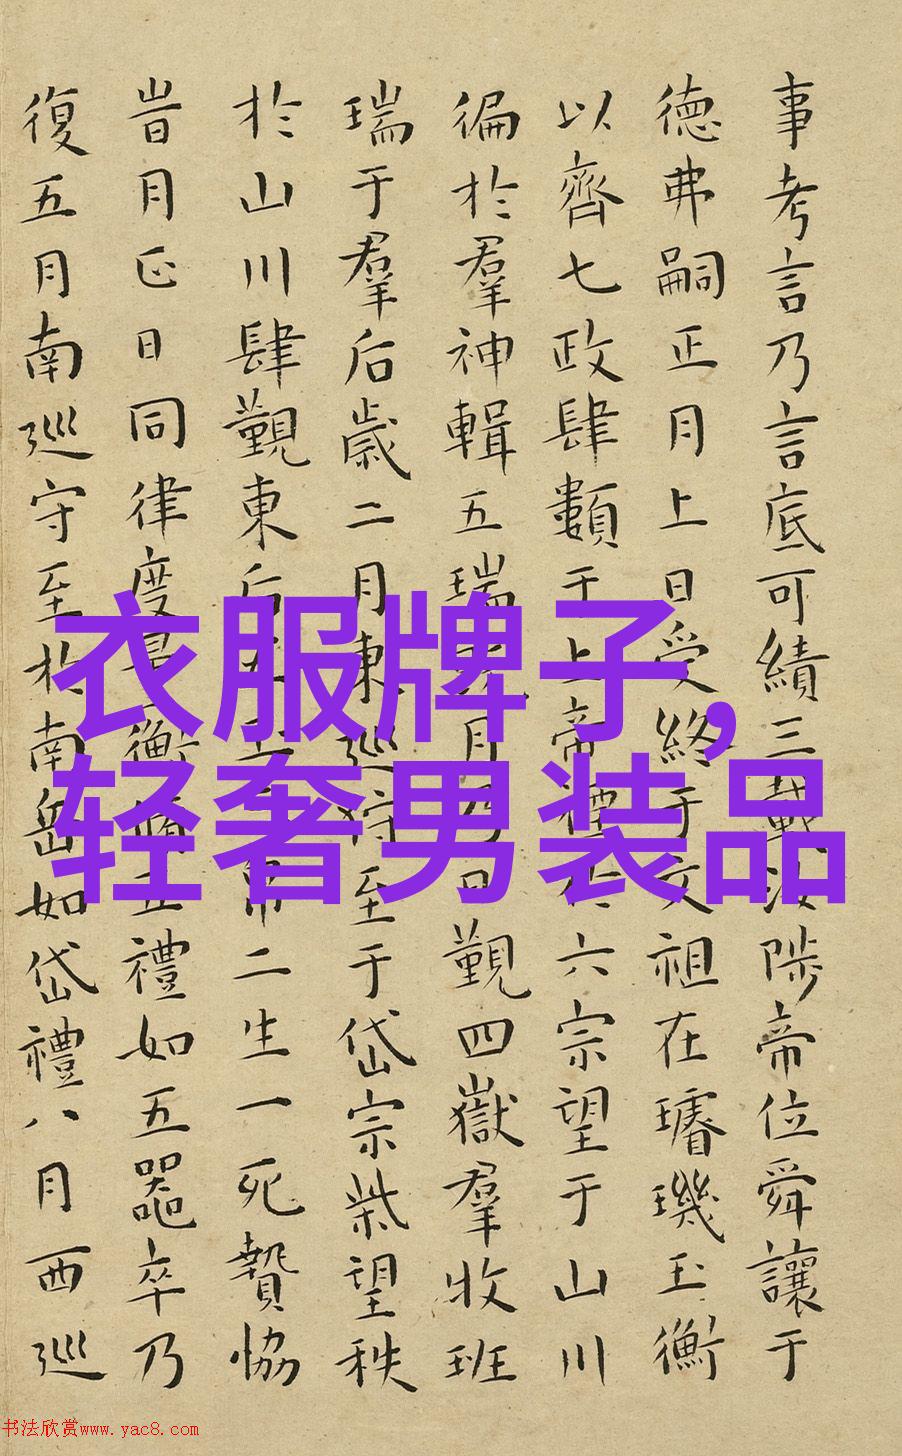 事考言乃言底可績三載汝陟帝位舜讓于
德弗嗣正月上日受終于文祖在璿璣玉衡
以齊七政肆類于上帝禋於六宗望于山川
徧於羣神輯五瑞月乃日覲四嶽羣牧班
瑞于羣后歲二月東巡守至于岱宗柴望秩
於山川肆覲東后帛二生一死贄協
旹月正日同律度量衡脩五禮如五器卒乃
復五月南巡守至於南岳如岱禮八月西巡
衣服牌子,
轻奢男装品
书法欣赏www.yac8.com